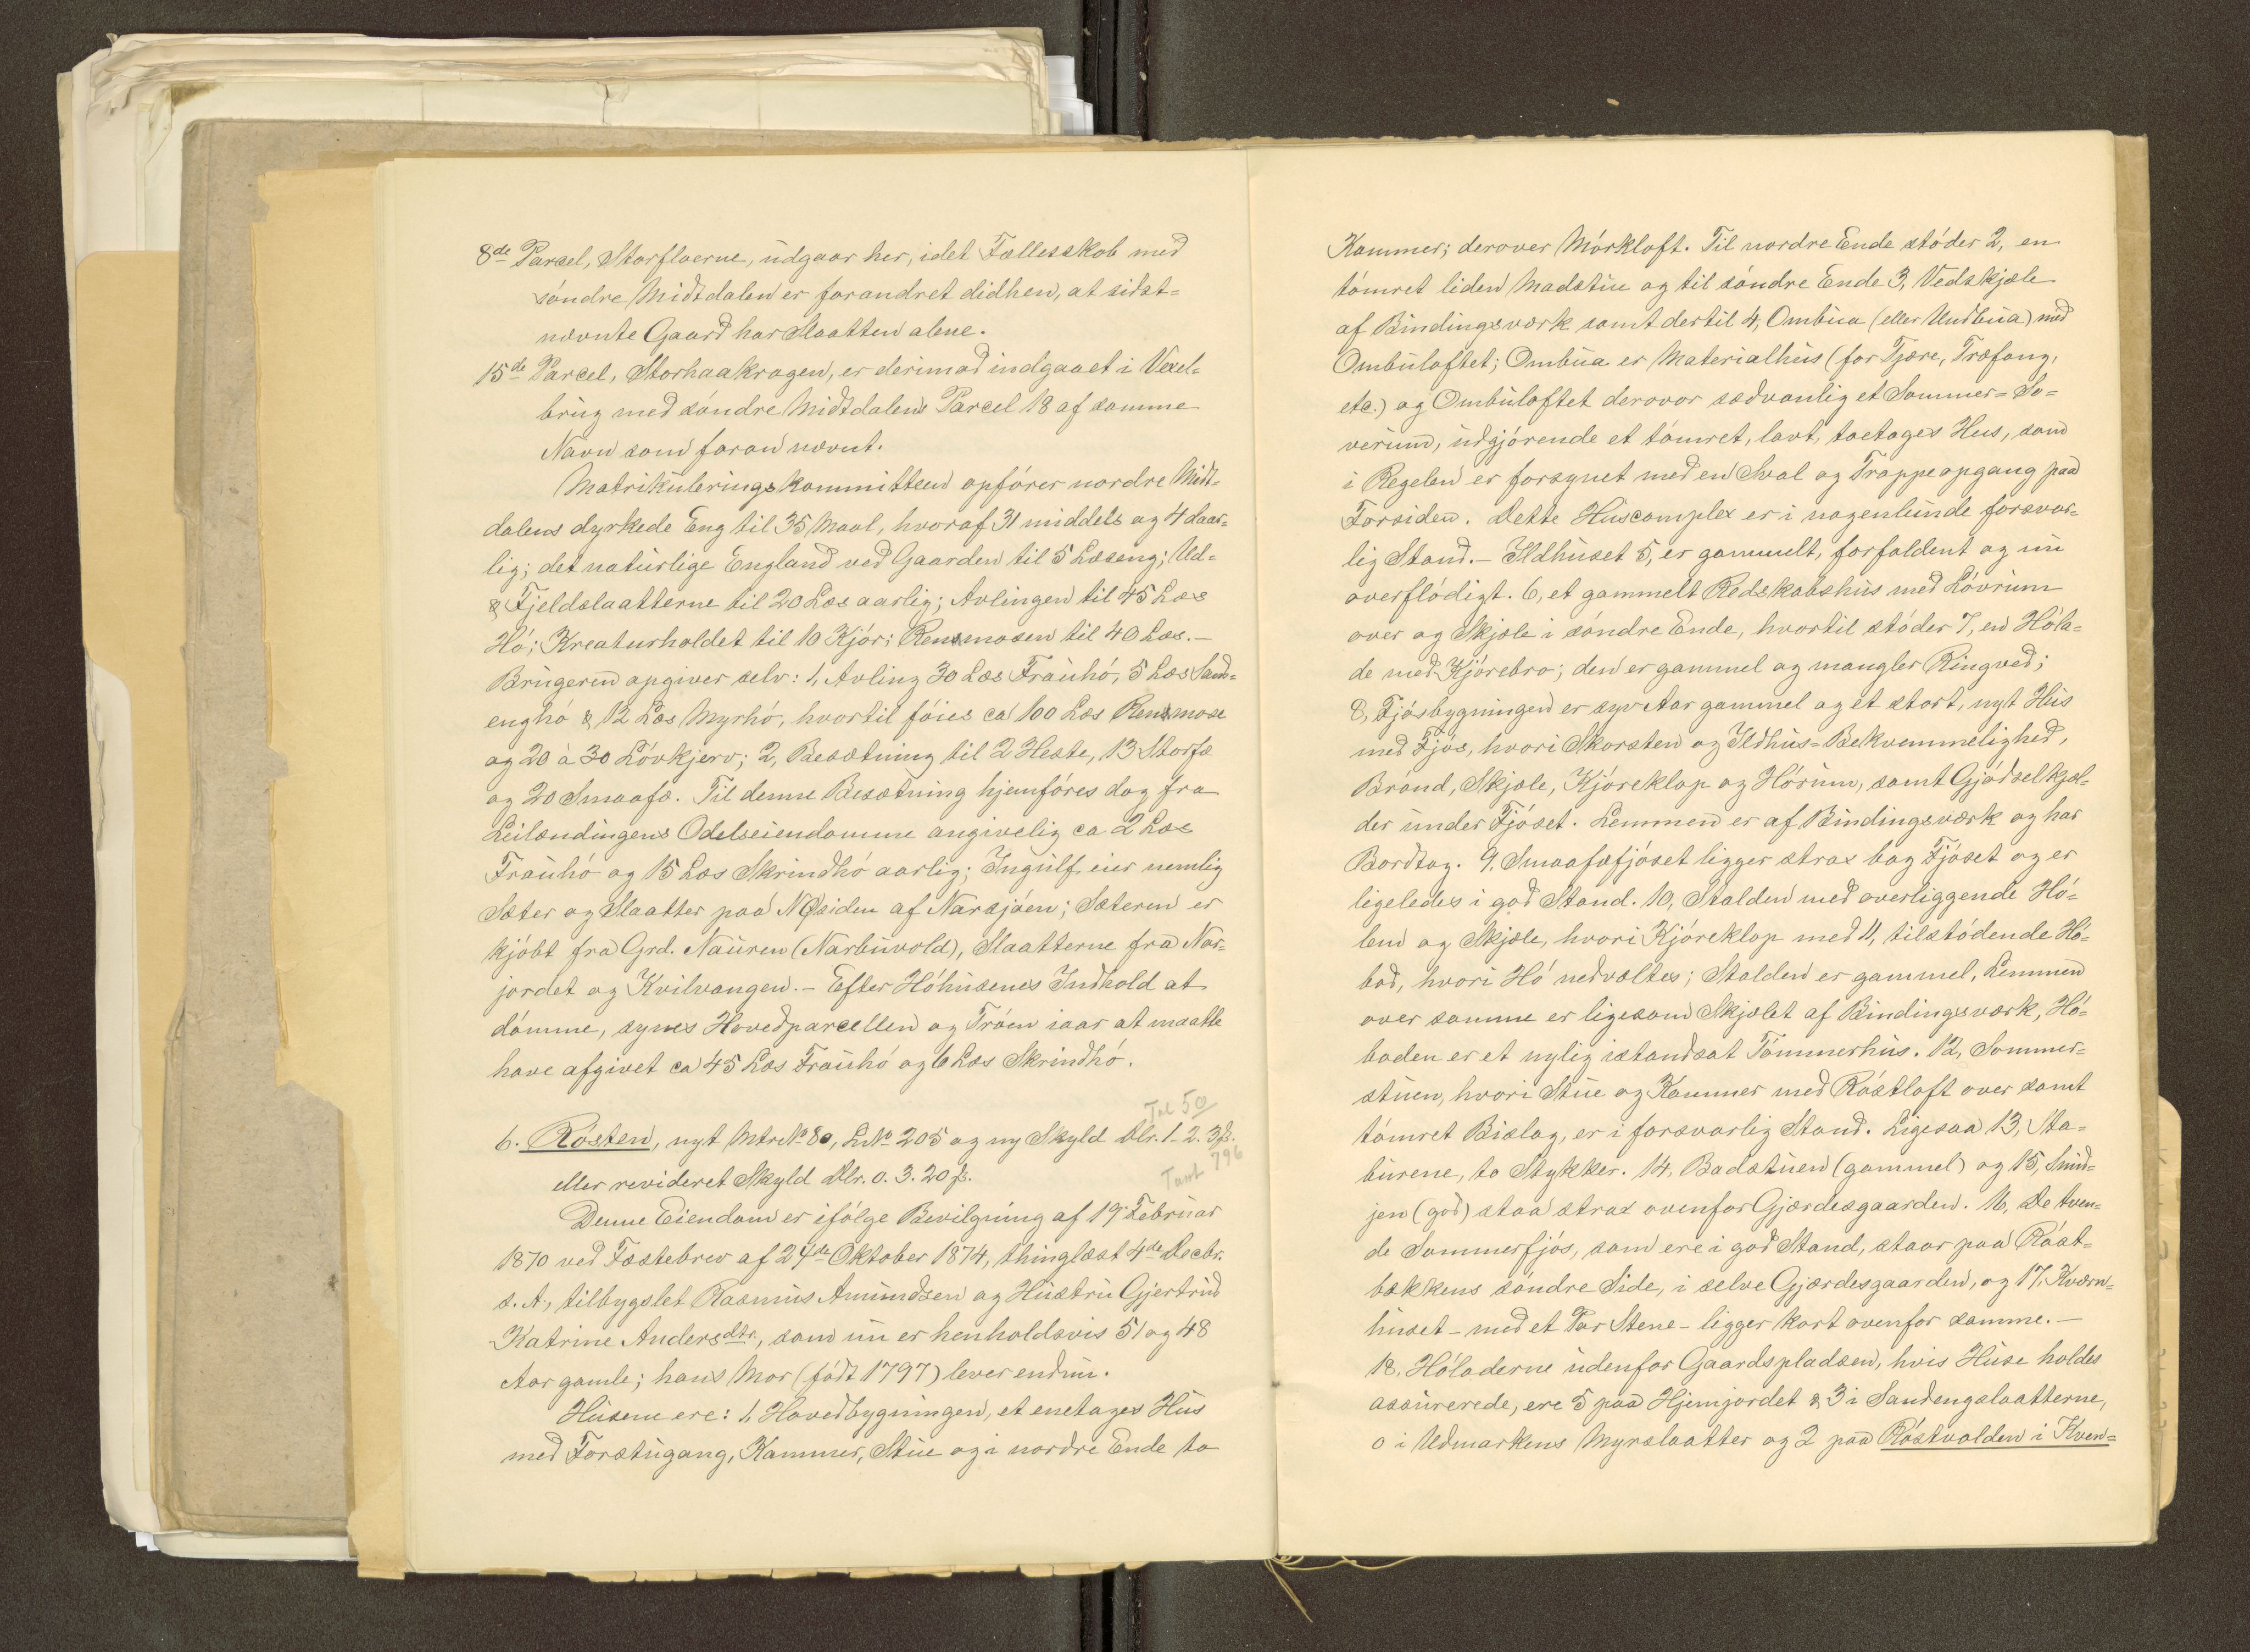 8de Parcel, Storfloerne, udgaar her, idet Fællesskab med
søndre Midtdalen er forandret didhen, at sidst=
nævnte Gaard har Slaatten alene.
15de Parcel, Storhaakragen, er derimod indgaaet i Vexel=
brug med søndre Midtdalens Parcel 18 af samme
Navn som foran nævnt.
Matrikuleringskommitteen opfører nordre Midt=
dalens dyrkede Eng til 35 Maal, hvoraf 31 middels og 4 daar=
lig; det naturlige England ved Gaarden til 5 Læseng; Ud=
& Fjeldslaatterne til 20 Læs aarlig; Avlingen til 45 Læs
Hø; Kreaturholdet til 10 Kjør; Rensmosen til 40 Læs.—
Brugeren opgiver selv: 1, Avling 30 Læs Frauhø, 5 Læs Sand=
enghø & 12 Læs Myrhø, hvortil føies ca 100 Læs Rensmose
og 20 à 30 Løvkjerv; 2, Besætning til 2 Heste, 13 Storfæ
og 20 Smaafæ. Til denne Besætning hjemføres dog fra
Leilændingens Odelseiendomme angivelig ca 2 Læs
Frauhø og 15 Læs Skrindhø aarlig; Ingulf eier nemlig
Sæter og Slaatter paa NØsiden af Narsjøen; Sæteren er
kjøbt fra Grd. Nauren (Narbuvold), Slaatterne fra Nar=
jordet og Kvilvangen.— Efter Høhusenes Indhold at
dømme, synes Hovedparcellen og Trøen iaar at maatte
have afgivet ca 45 Læs Frauhø og 6 Læs Skrindhø.
Tal 50
6. Røsten, nyt Mtr№ 80, L№ 205 og ny Skyld Dlr. 1-2. 3ß.
Taxt 796
eller revideret Skyld Dlr. 0. 3. 20ß.
Denne Eiendom er ifølge Bevilgning af 19 Februar
1870 ved Fæstebrev af 24de Oktober 1874, thinglæst 4de Decbr.
s. A., tilbygslet Rasmus Amundsen og Hustru Gjertrud
Katrine Andersdtr., som nu er henholdsvis 51 og 48
Aar gamle; hans Mor (født 1797) lever endnu.
Husene ere: 1, Hovedbygningen, et enetages Hus
med Forstugang, Kammer, Stue og i nordre Ende to
Kammer; derover Mørkloft. Til nordre Ende støder 2, en
tømret liden Madstue og til søndre Ende 3, Vedskjæle
af Bindingsværk samt dertil 4, Ombua (eller Undbua) med
Ombuloftet; Ombua er Materialhus (for Tjære, Træfang,
etc.) og Ombuloftet derover sædvanlig et Sommer=So=
verum, udgjørende et tømret, lavt, toetages Hus, som
i Regelen er forsynet med en Sval og Trappeopgang paa
Forsiden. Dette Huscomplex er i nogenlunde forsvar=
lig Stand.— Ildhuset 5, er gammelt, forfaldent og nu
overflødigt. 6, et gammelt Redskabshus med Løvrum
over og Skjæle i søndre Ende, hvortil støder 7, en Høla=
de med Kjørebro; den er gammel og mangler Ringved;
8, Fjøsbygningen er syv Aar gammel og et stort, nyt Hus
med Fjøs, hvori Skorsten og Ildhus=Bekvemmelighed,
Brønd, Skjæle, Kjøreklop og Hørum, samt Gjødselkjæl=
der under Fjøset. Lemmen er af Bindingsværk og har
Bordtag. 9, Smaafæfjøset ligger strax bag Fjøset og er
ligeledes i god Stand. 10, Stalden med overliggende Hø=
lem og Skjæle, hvori Kjøreklop med 11, tilstødende Hø=
bod, hvori Hø nedvæltes; Stalden er gammel, Lemmen
over samme er ligesom Skjælet af Bindingsværk, Hø=
boden er et nylig istandsat Tømmerhus. 12, Sommer=
stuen, hvori Stue og Kammer med Røstloft over samt
tømret Bislag, er i forsvarlig Stand. Ligesaa 13, Sta=
burene, to Stykker. 14, Badstuen (gammel) og 15, Smid=
jen (god) staa strax ovenfor Gjærdesgaarden. 16, De tven=
de Sommerfjøs, som ere i god Stand, staar paa Røst=
bækkens søndre Side, i selve Gjærdesgaarden, og 17, Kværn=
huset – med et Par Stene – ligger kort ovenfor samme.—
18, Høladerne udenfor Gaardspladsen, hvis Huse holdes
assurerede, ere 5 paa Hjemjordet & 3 i Sandengslaatterne,
0 i Udmarkens Myrslaatter og 2 paa Røstvolden i Kven=